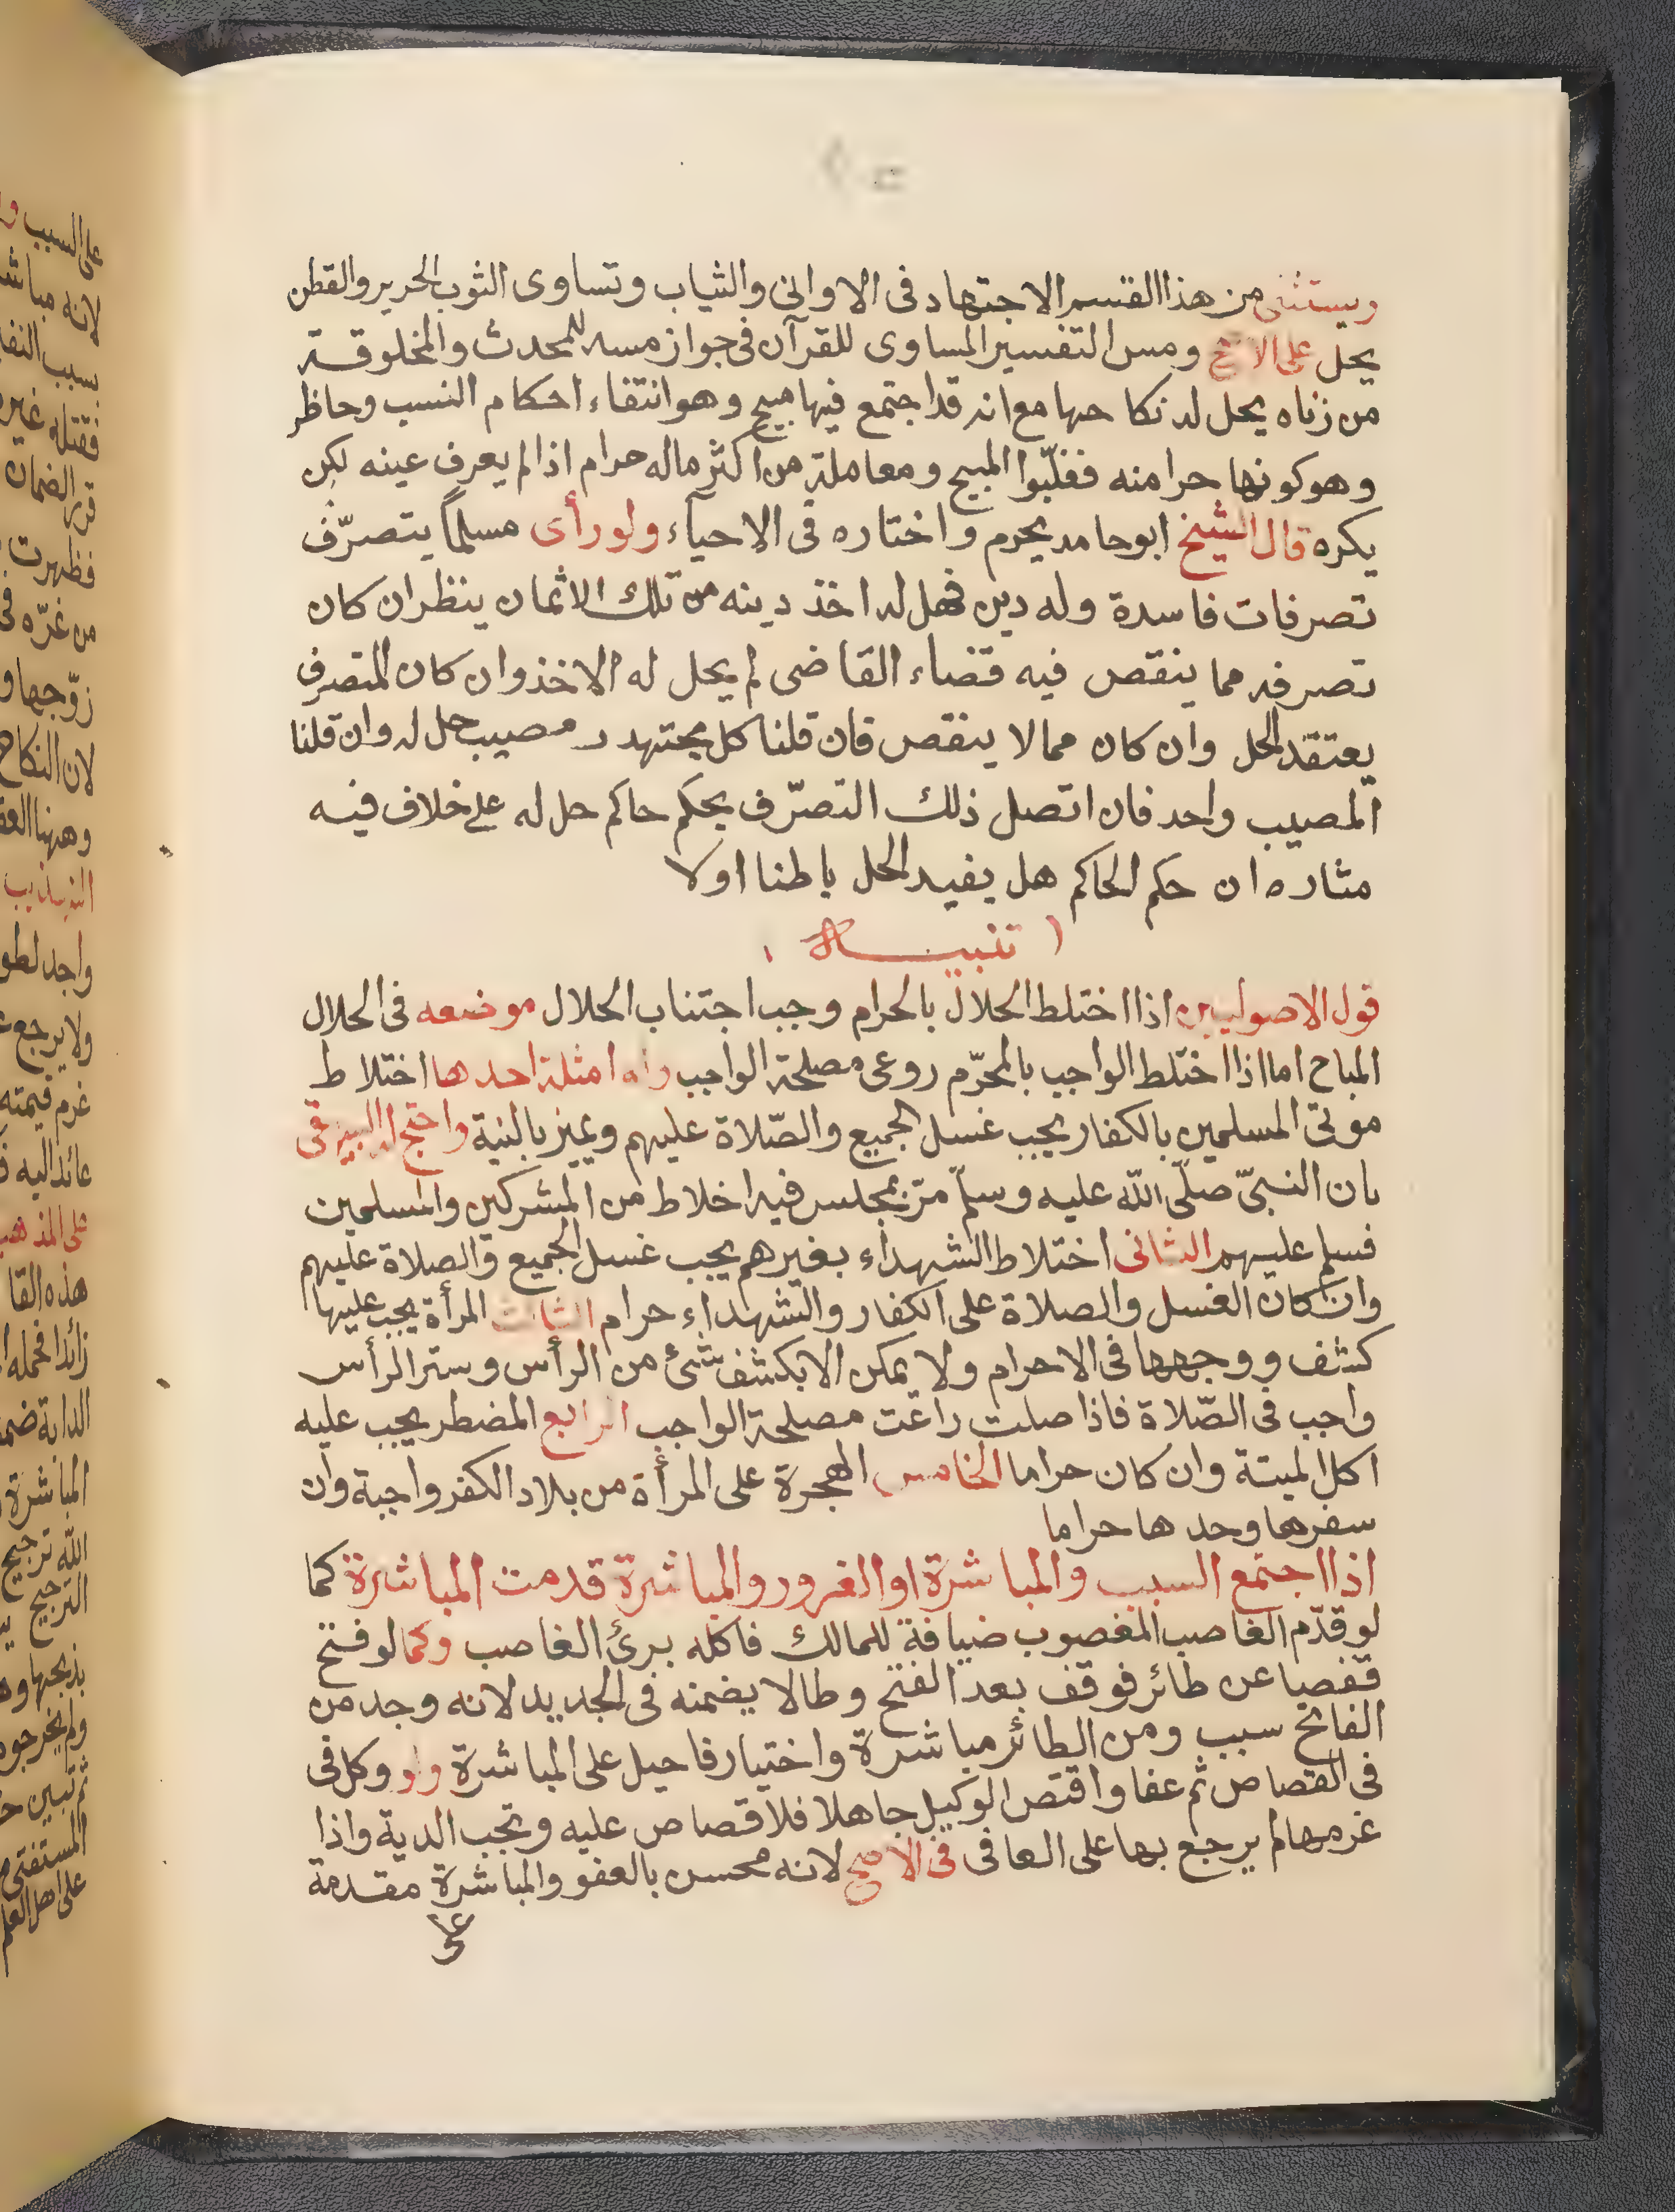 ويستثنى من هذا القسم الاجتهاد فى الاوانى والثياب وتساوى الثوب الحرير والقطن
يحل على الاصح ومس التفسير المساوى للقرآن فى جواز مسه للمحدث والمخلوقة
من زناه يحل له نكاحها مع انه قد اجتمع فيها مبيح وهو انتفاء احكام النسب وحاظر
وهو كونها حرا منه فغلّبوا المبيح ومعاملة من اكثر ماله حرام اذا لم يعرف عينه لكن
يكره قال الشيخ ابوحامد يحرم واختاره فى الاحيآء ولو رأى مسلماً يتصرّف
تصرفات فاسدة وله دين فهل له اخذ دينه من تلك الاثمان ينظر ان كان
تصرفه مما ينقص فيه قضاء القاضى لم يحل له الاخذ وان كان المتصرف
يعتقد الحل وان كان مما لا ينقص فان قلنا كل مجتهد مصيب حل له وان قلنا
المصيب واحد فان اتصل ذلك التصرّف بحكم حاكم حل له على خلاف فيه
مثاره ان حكم الحاكم هل يفيد الحل باطنا اولا
( تنبيه )
قول الاصوليين اذا اختلط الحلال بالحرام وجب اجتناب الحلال موضعه فى الحلال
المباح اما اذا اختلط الواجب بالمحرّم روعى مصلحة الواجب وله امثلة احدها اختلاط
موتى المسلمين بالكفار يجب غسل الجميع والصّلاة عليهم ويميز بالنية واحتج له البيهقى
بان النبىّ صلّى الله عليه وسلّم مرّ بمجلس فيه اخلاط من المشركين والمسلمين
فسلم عليهم الثانى اختلاط الشهداء بغيرهم يجب غسل الجميع والصلاة عليهم
وان كان الغسل والصلاة على الكفار والشهداء حرام الثالث المرأة يجب عليها
كشف ووجهها فى الاحرام ولا يمكن الا بكشف شئ من الرأس وستر الرأس
واجب فى الصّلاة فاذا صلت راعت مصلحة الواجب الرابع المضطر يجب عليه
اكل الميتة وان كان حراما الخامس الهجرة على المرأة من بلاد الكفر واجبة وان
سفرها وحدها حراما
اذا اجتمع السبب والمباشرة او الغرور والمباشرة قدمت المباشرة كما
لو قدّم الغاصب المغصوب ضيافة للمالك فاكله برئ الغاصب وكما لو فتح
قفصا عن طائر فوقف بعد الفتح وطالا يضمنه فى الجديد لانه وجد من
الفاتح سبب ومن الطائر مباشرة واختيار فاحيل على المباشرة ولو وكل فى
فى القصاص ثم عفا واقتص الوكيل جاهلا فلا قصاص عليه وتجب الدية واذا
غرمها لم يرجع بها على العافى فى الاصح لانه محسن بالعفو والمباشرة مقدمة
على